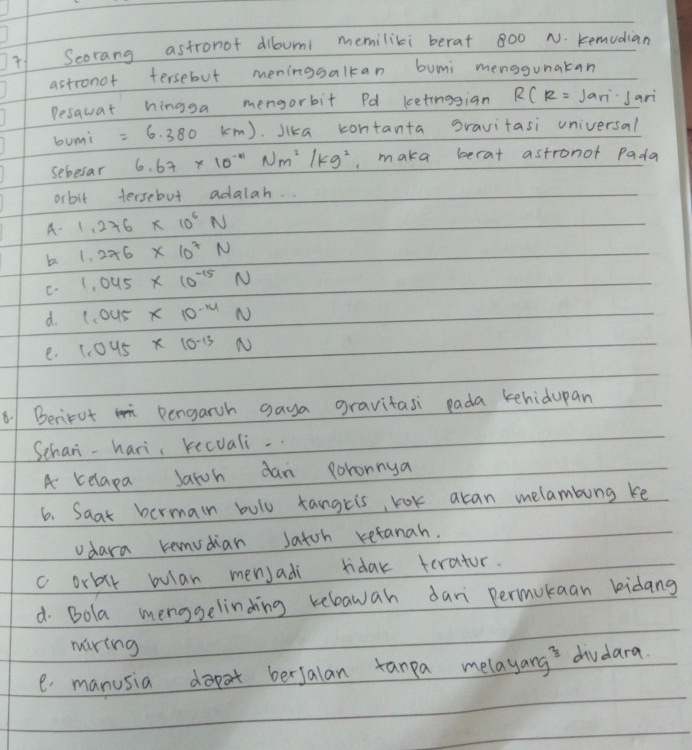 7. Seorang astronot dibumi memiliki berat 800 N. Kemudian
astronot tersebut meninggalkan bumi menggunakan
Pesawat hingga mengorbit Pd ketinggian R (R = Jari-Jari
bumi = 6.380 km). Jika kontanta gravitasi universal
sebesar 6.67 × 10⁻¹¹ Nm²/kg², maka berat astronot pada
orbit tersebut adalah...
A. 1,276 × 10⁶ N
b. 1.276 × 10⁷ N
c. 1,045 × 10⁻¹⁵ N
d. 1.045 × 10⁻¹⁴ N
e. 1.045 × 10⁻¹³ N
8. Berikut pengaruh gaya gravitasi pada kehidupan
Sehari-hari, kecuali...
A. Kelapa Jatuh dari Pohonnya
b. Saat bermain bulu tangkis, kok akan melambung ke
udara kemudian Jatuh ketanah.
c. orbit bulan menjadi tidak teratur.
d. Bola menggelinding kebawah dari permukaan bidang
miring
e. manusia dapat berjalan tanpa melayang² diudara.